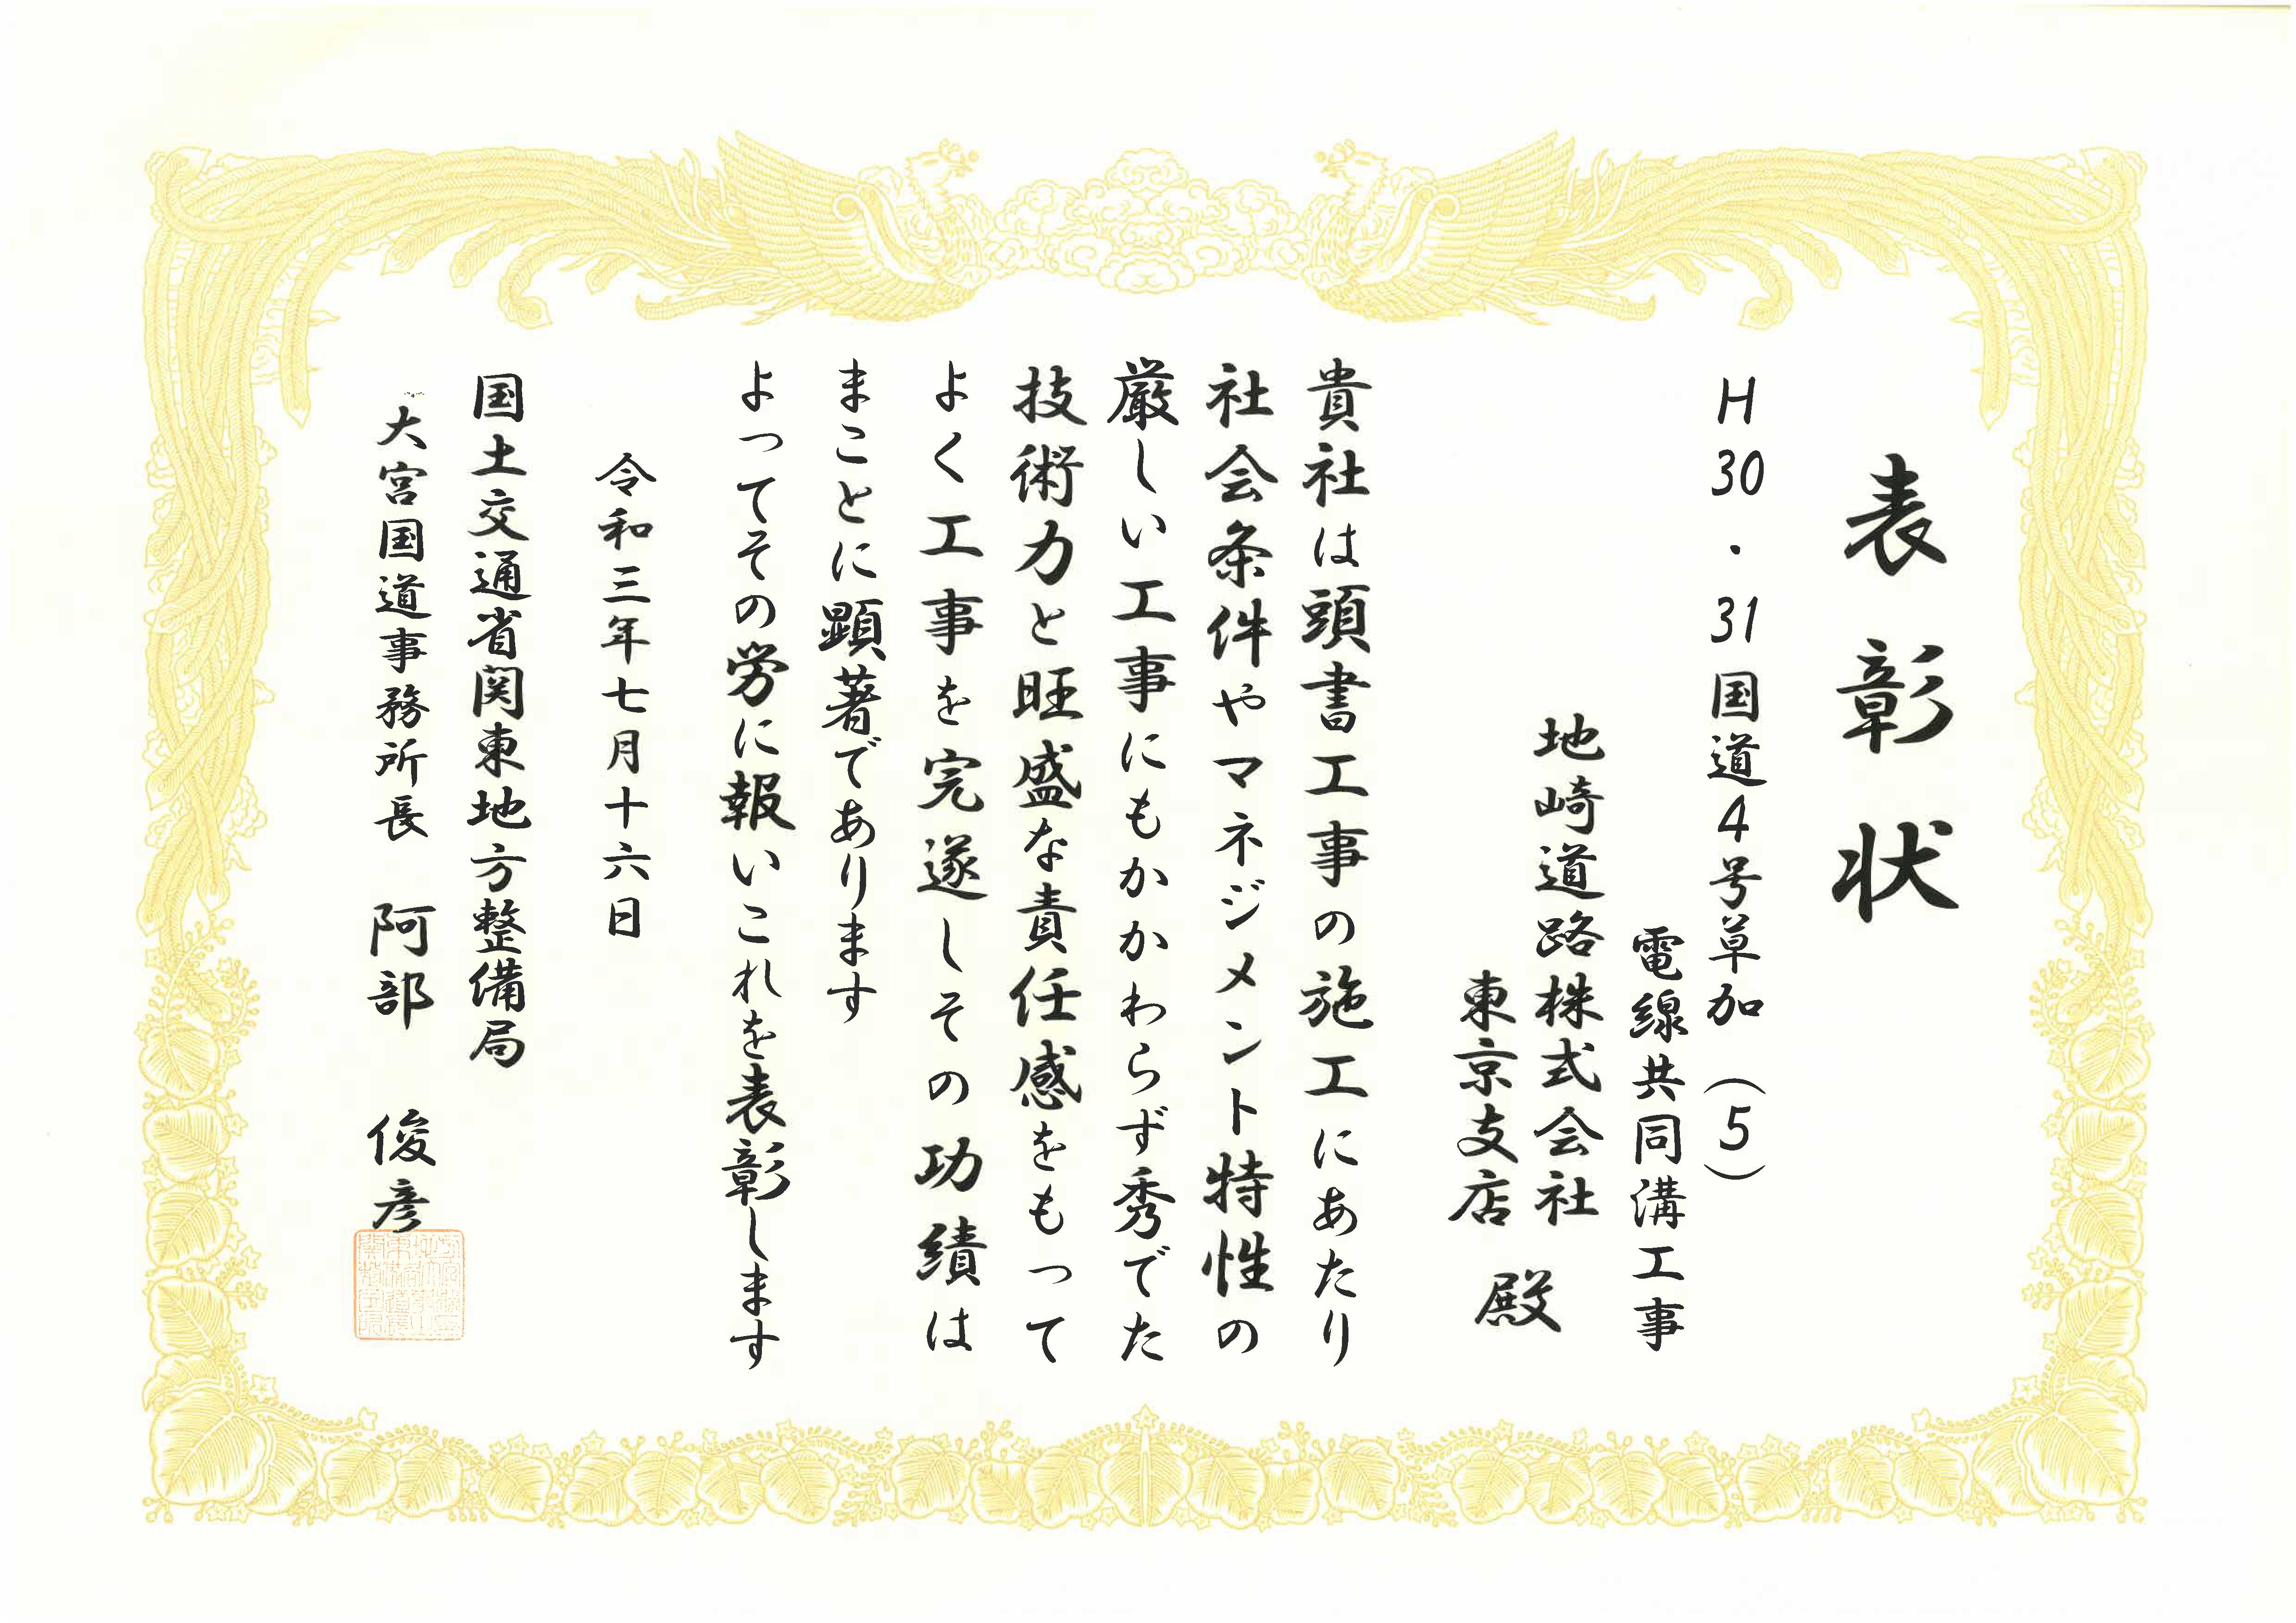 表彰状
H30・31国道4号草加(5)
電線共同溝工事
地崎道路株式会社
東京支店
殿
貴社は頭書工事の施工にあたり
社会条件やマネジメント特性の
厳しい工事にもかかわらず秀でた
技術力と旺盛な責任感をもって
よく工事を完遂しその功績は
まことに顕著であります
よってその労に報いこれを表彰します
令和三年七月十六日
国土交通省関東地方整備局
大宮国道事務所長 阿部 俊彦